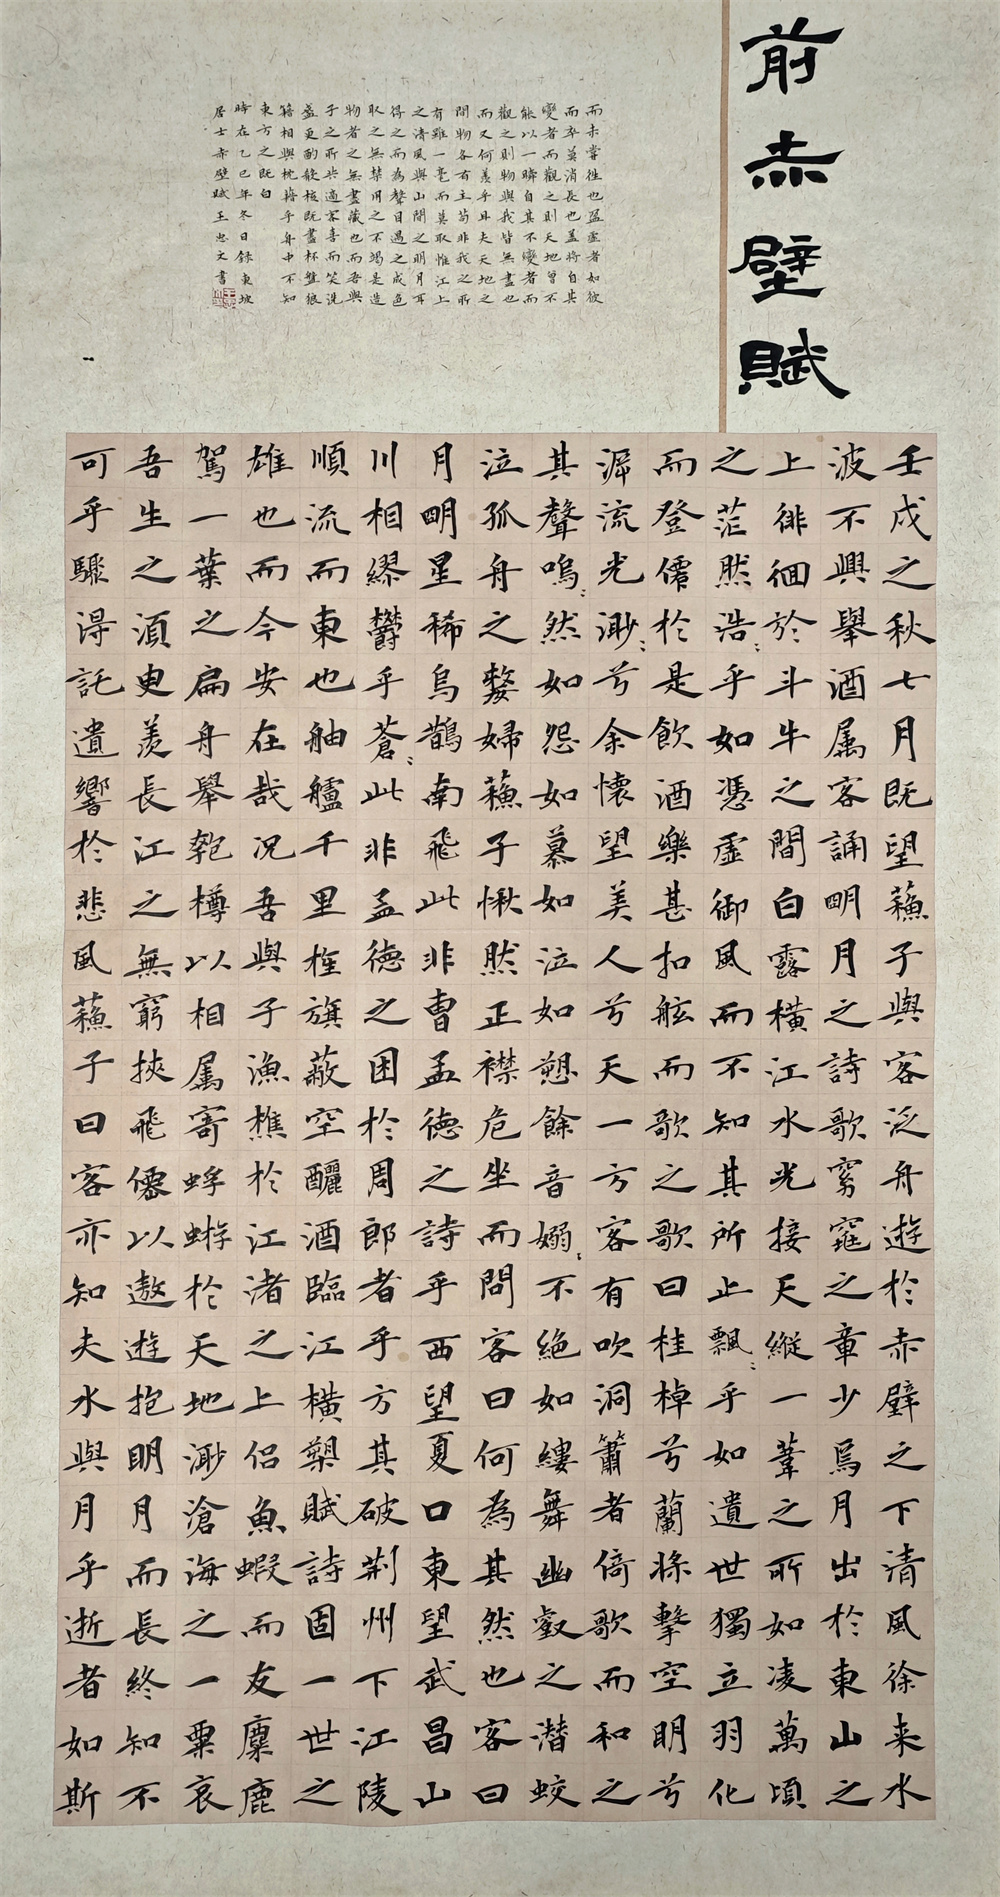 前赤壁賦
壬戌之秋七月既望蘓子與客泛舟遊於赤壁之下清風徐来水
波不興舉酒属客誦明月之詩歌窈窕之章少焉月出於東山之
上徘徊於斗牛之間白露橫江水光接天縱一葦之所如凌萬頃
之茫然浩〻乎如憑虛御風而不知其所止飄〻乎如遺世獨立羽化
而登僊於是飲酒樂甚扣舷而歌之歌曰桂棹兮蘭槳擊空明兮
泝流光渺〻兮余懷望美人兮天一方客有吹洞簫者倚歌而和之
其聲嗚〻然如怨如慕如泣如愬餘音嫋〻不絕如縷舞幽壑之潜蛟
泣孤舟之嫠婦蘓子愀然正襟危坐而問客曰何為其然也客曰
月明星稀烏鵲南飛此非曹孟德之詩乎西望夏口東望武昌山
川相繆鬱乎蒼〻此非孟德之困於周郎者乎方其破荆州下江陵
順流而東也舳艫千里旌旗蔽空釃酒臨江橫槊賦詩固一世之
雄也而今安在哉况吾與子漁樵於江渚之上侣魚蝦而友麋鹿
駕一葉之扁舟舉匏樽以相属寄蜉蝣於天地渺滄海之一粟哀
吾生之須臾羨長江之無窮挾飛僊以遨遊抱明月而長終知不
可乎驟得託遺響於悲風蘓子曰客亦知夫水與月乎逝者如斯
而未嘗往也盈虛者如彼
而卒莫消長也蓋將自其
變者而觀之則天地曾不
能以一瞬自其不變者而
觀之則物與我皆無盡也
而又何羨乎且夫天地之
間物各有主苟非我之所
有雖一毫而莫取惟江上
之清風與山間之明月耳
得之而為聲目遇之成色
取之無禁用之不竭是造
物者之無盡藏也而吾與
子之所共適客喜而笑洗
盞更酌肴核既盡杯盤狼
籍相與枕藉乎舟中不知
東方之既白
時在乙巳年冬日錄東坡
居士赤壁賦王忠文書